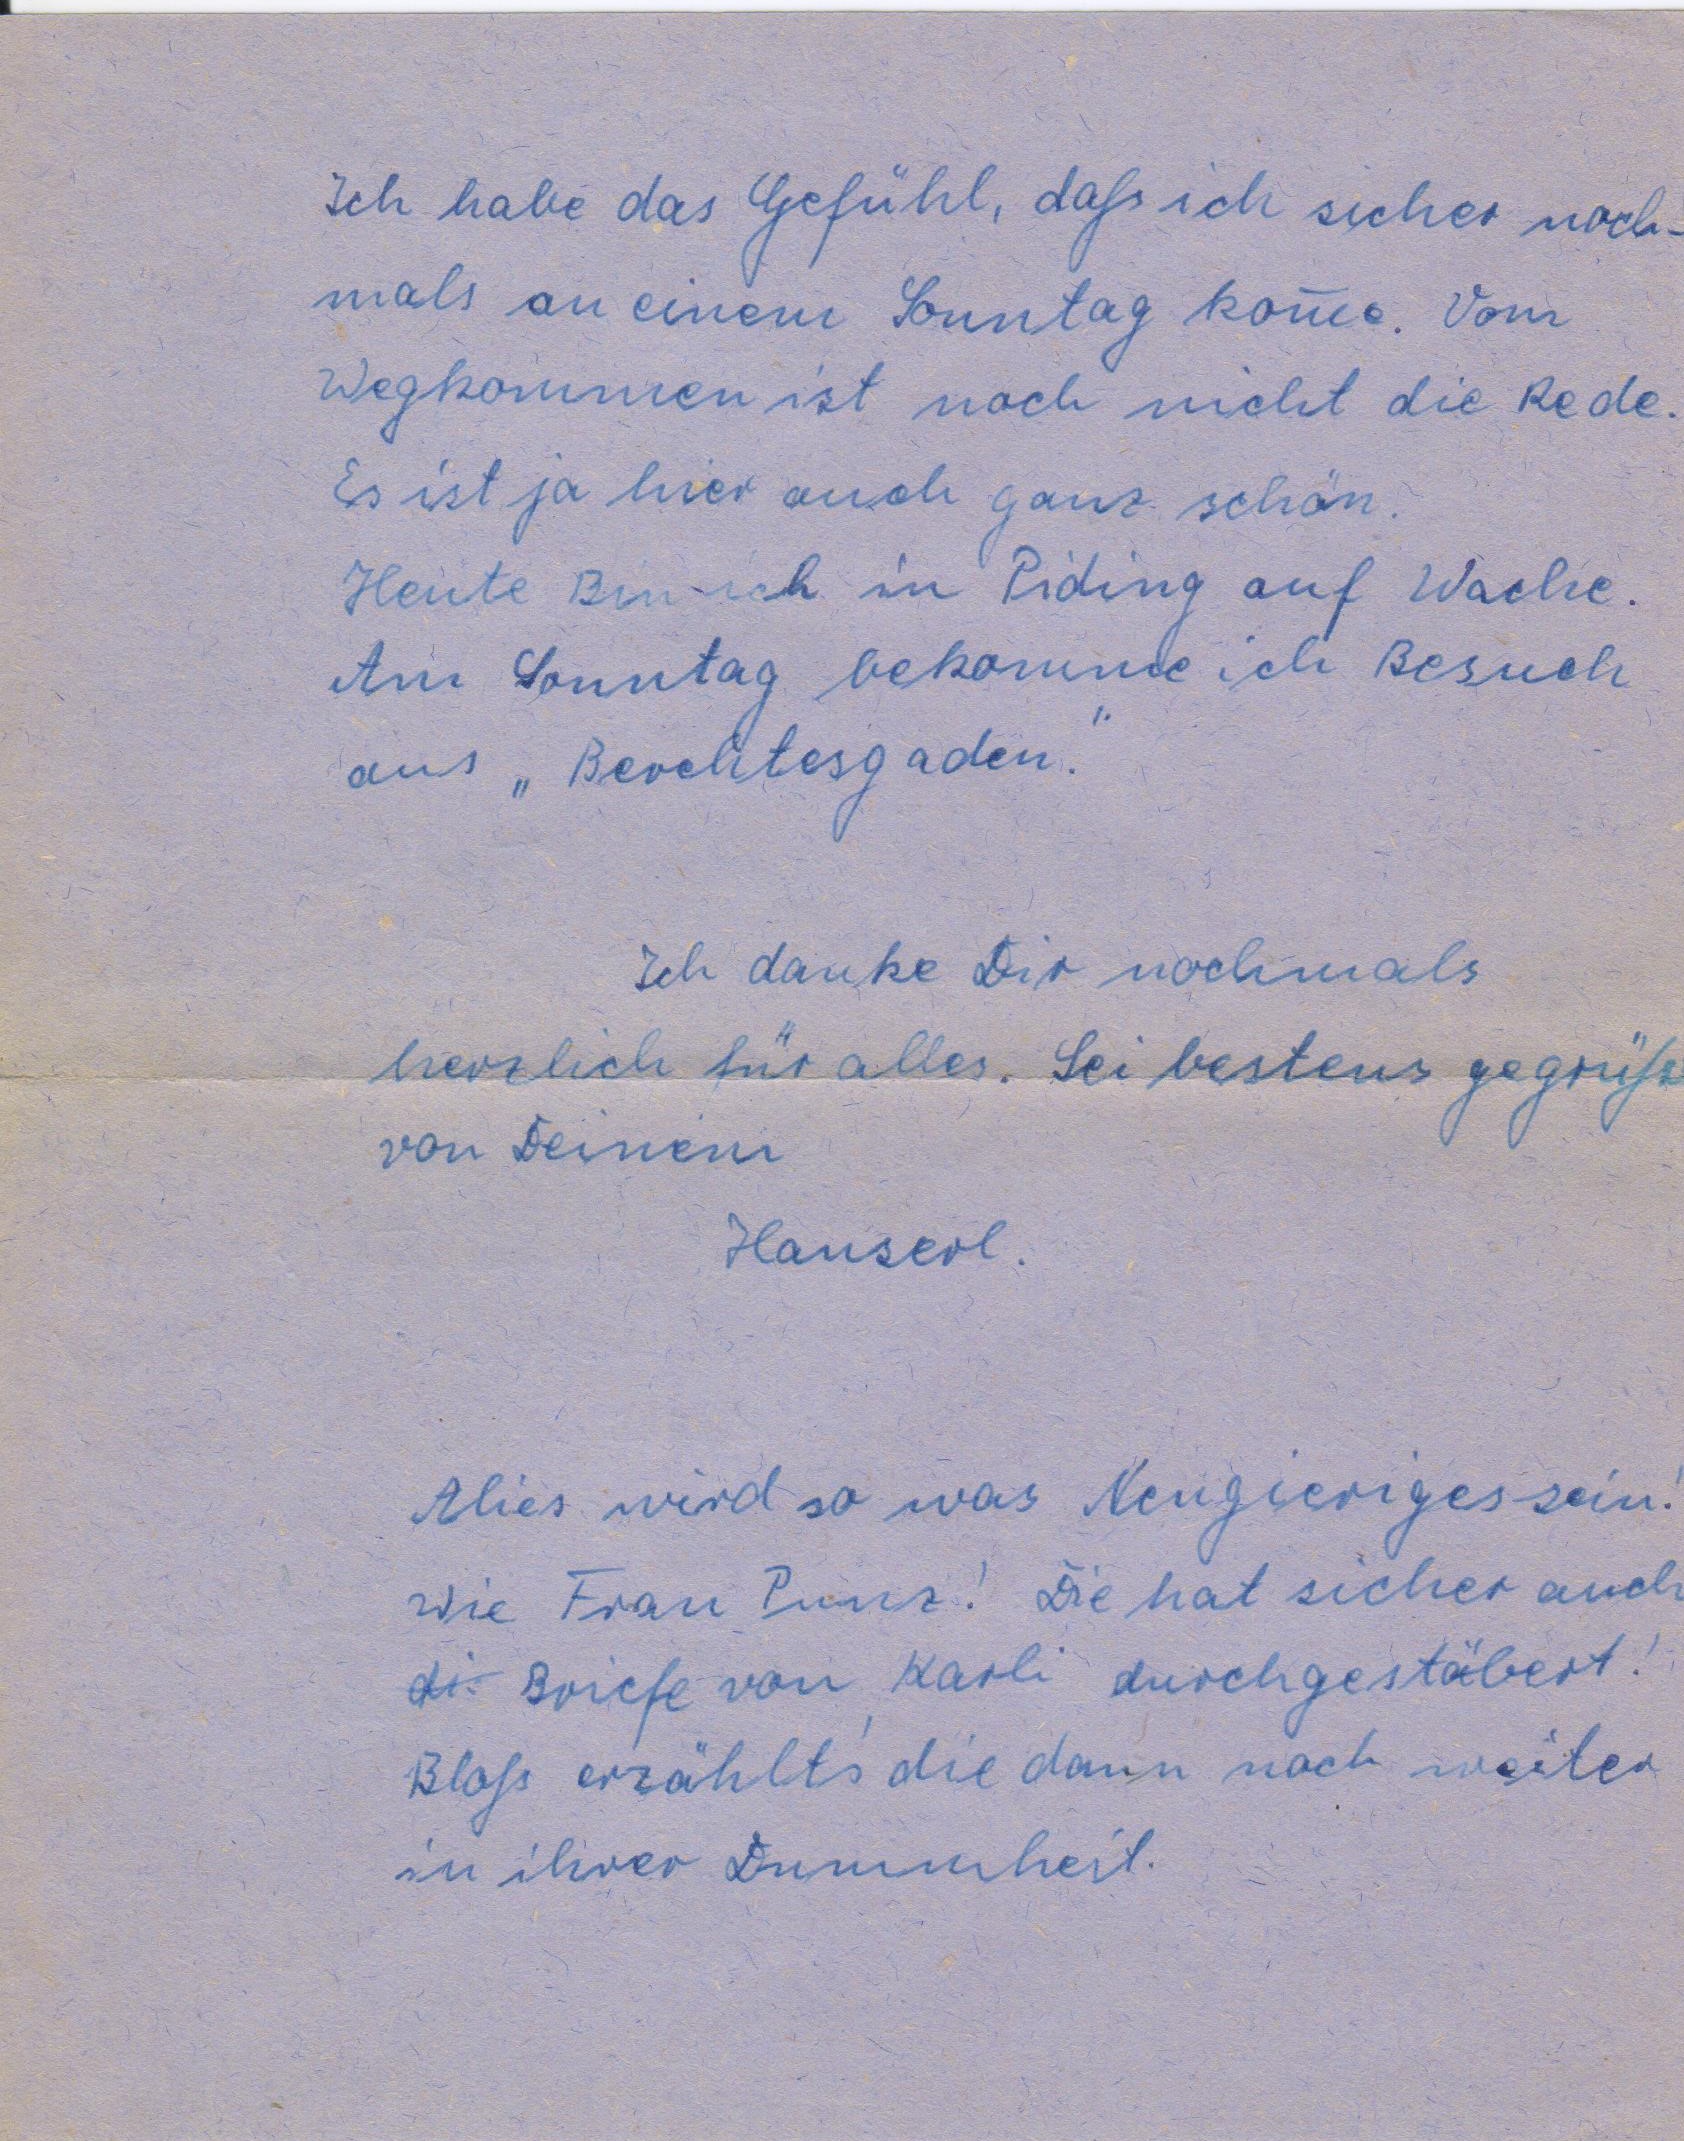 Ich habe das Gefühl, daß ich sicher noch-
mals an einem Sonntag kom̄e. Vom
Wegkommen ist noch nicht die Rede.
Es ist ja hier auch ganz schön.
Heute Bin ich in Piding auf Wache.
Am Sonntag bekomme ich Besuch
aus „Berchtesgaden."
Ich danke Dir nochmals
herzlich für alles. Sei bestens gegrüßt
von Deinem
Hanserl.
Alies wird so was Neugieriges sein!
wie Frau Punz! Die hat sicher auch
di Briefe von Karli durchgestäbert!
Bloß erzählt's die dann noch weiter
in ihrer Dummheit.